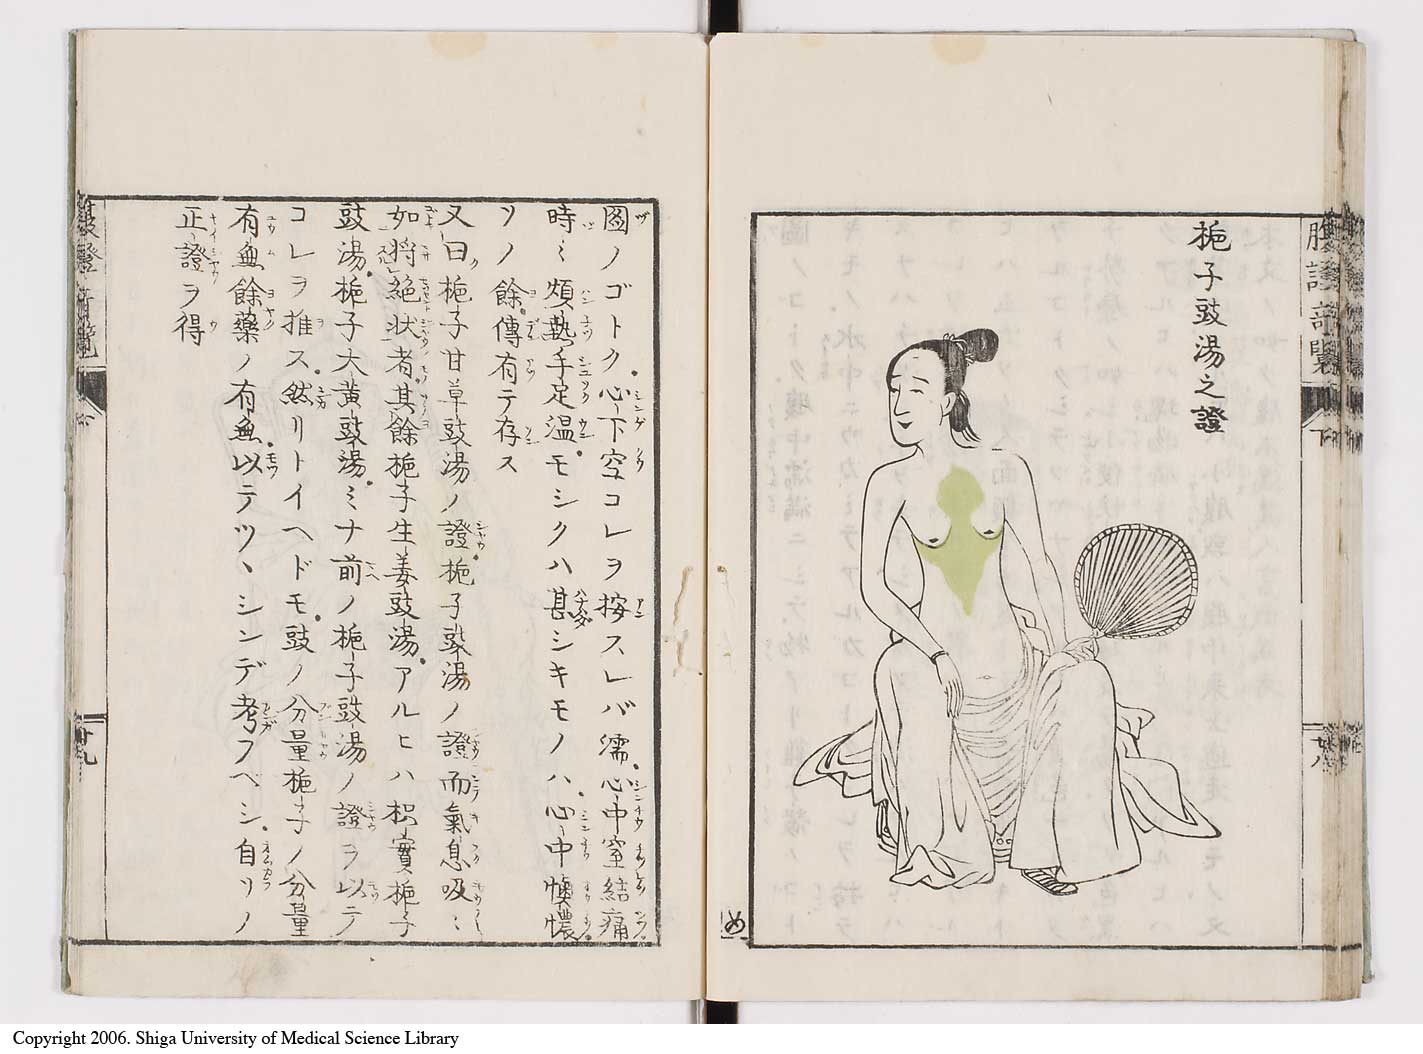 梔子豉湯之證
腹證奇覧
下
圖ノゴトク心下空コレヲ按スレバ濡心中窒結痛
時ミ煩熱手足温モシクハ甚シキモノハ心中懊憹
ソノ餘傳有テ存ス
又曰梔子甘草豉湯ノ證梔子豉湯ノ證而氣息吸ミ
如將絶状者其餘梔子生姜豉湯アルヒハ枳實梔子
豉湯梔子大黄豉湯ミナ前ノ梔子豉湯ノ證ヲ以テ
コレヲ推ス然リトイヘドモ豉ノ分量梔子ノ分量
有無餘藥ノ有無以テツヽシンデ考フベシ自リノ
正證ヲ得
十九
め
Copyright 2006. Shiga University of Medical Science Library